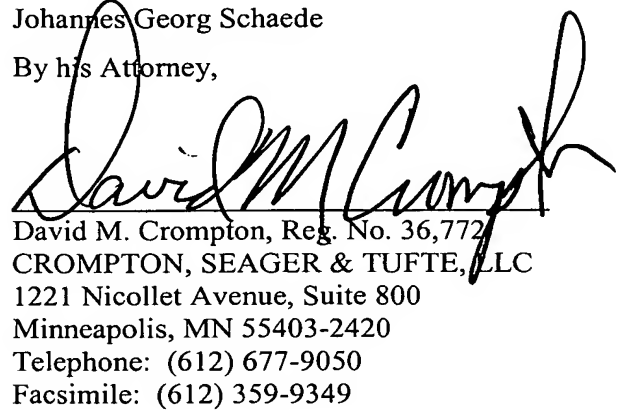 Johannes Georg Schaede
By his Attorney,
David M Crompton
David M. Crompton, Reg. No. 36,772
CROMPTON, SEAGER & TUFTE, LLC
1221 Nicollet Avenue, Suite 800
Minneapolis, MN 55403-2420
Telephone: (612) 677-9050
Facsimile: (612) 359-9349